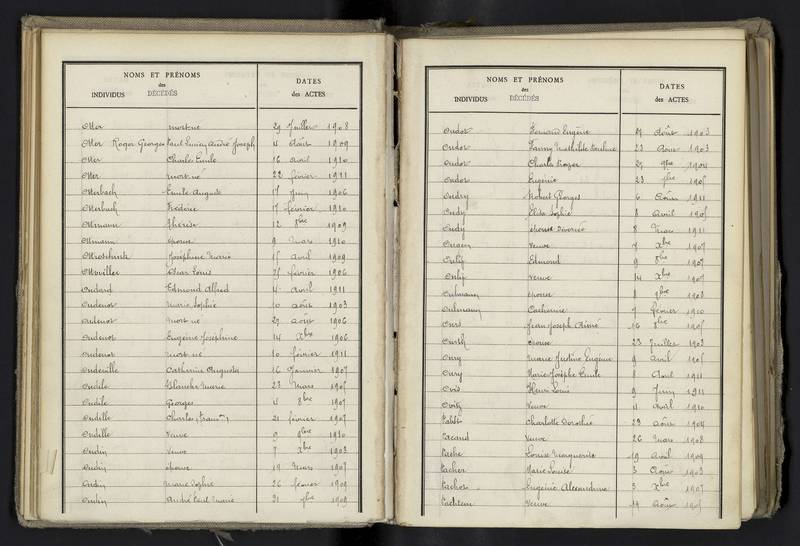 NOMS ET PRÉNOMS
des
INDIVIDUS DÉCÉDÉS
DATES
des ACTES
Otter mort-né 29 Juillet 1908
Otter Roger Georges Paul Lucien André Joseph 4 Août 1909
Otter Charles Emile 16 avril 1910
Otter mort né 22 février 1911
Otterbach Emile Auguste 17 Juin 1906
Otterbach Frédéric 17 février 1910
Ottmann Thérèse 12 8bre 1909
Ottmann épouse 9 mars 1910
Joséphine Marie 15 avril 1909
Oscar Louis 25 février 1906
Oudard Edmond Alfred 4 avril 1911
Oudenot Marie Sophie 10 août 1903
Oudenot mort né 29 août 1906
Oudenot Eugénie Joséphine 14 Xbre 1906
Oudenot mort né 10 février 1911
Oudeville Catherine Augusta 16 Janvier 1907
Oudile Blanche Marie 23 Mars 1905
Oudile Georges 4 8bre 1907
Oudille Charles 21 février 1907
Oudille Veuve 9 1910
Oudin Veuve 7 Xbre 1903
Oudin épouse 19 Mars 1907
Oudin Marie Sophie 26 février 1909
Oudin André Paul Marie 21 1909
NOMS ET PRÉNOMS
des
INDIVIDUS DÉCÉDÉS
DATES
des ACTES
Oudot Fernand Eugène 27 Août 1903
Oudot Fanny Mathilde Pauline 23 Août 1903
Oudot Charles Roger 27 9bre 1904
Oudot Eugénie 23 1905
Oudry Robert Georges 6 Août 1911
Oudy Elisa Sophie 8 Avril 1905
Oudy épouse divorcée 8 Mars 1911
Veuve 7 Xbre 1907
Oulif Edmond 9 8bre 1907
Oulif Veuve 14 Xbre 1907
Oulmann épouse 1903
Oulmann Catherine 7 février 1910
Jean Joseph Aimé 16 8bre 1905
épouse 23 Juillet 1903
Oury Marie Justine Eugénie 9 avril 1905
Oury Marie Josèphe Emile 8 Avril 1911
Henri Louis 9 Juin 1911
Veuve 4 Avril 1910
Pabst Charlotte Dorothée 23 août 1904
Pacaud Veuve 26 Mars 1908
Pache Louise Marguerite 19 Avril 1909
Pacher Marie Louise 3 Août 1903
Pachot Eugénie Alexandrine 3 Xbre 1907
Veuve 19 Août 1905